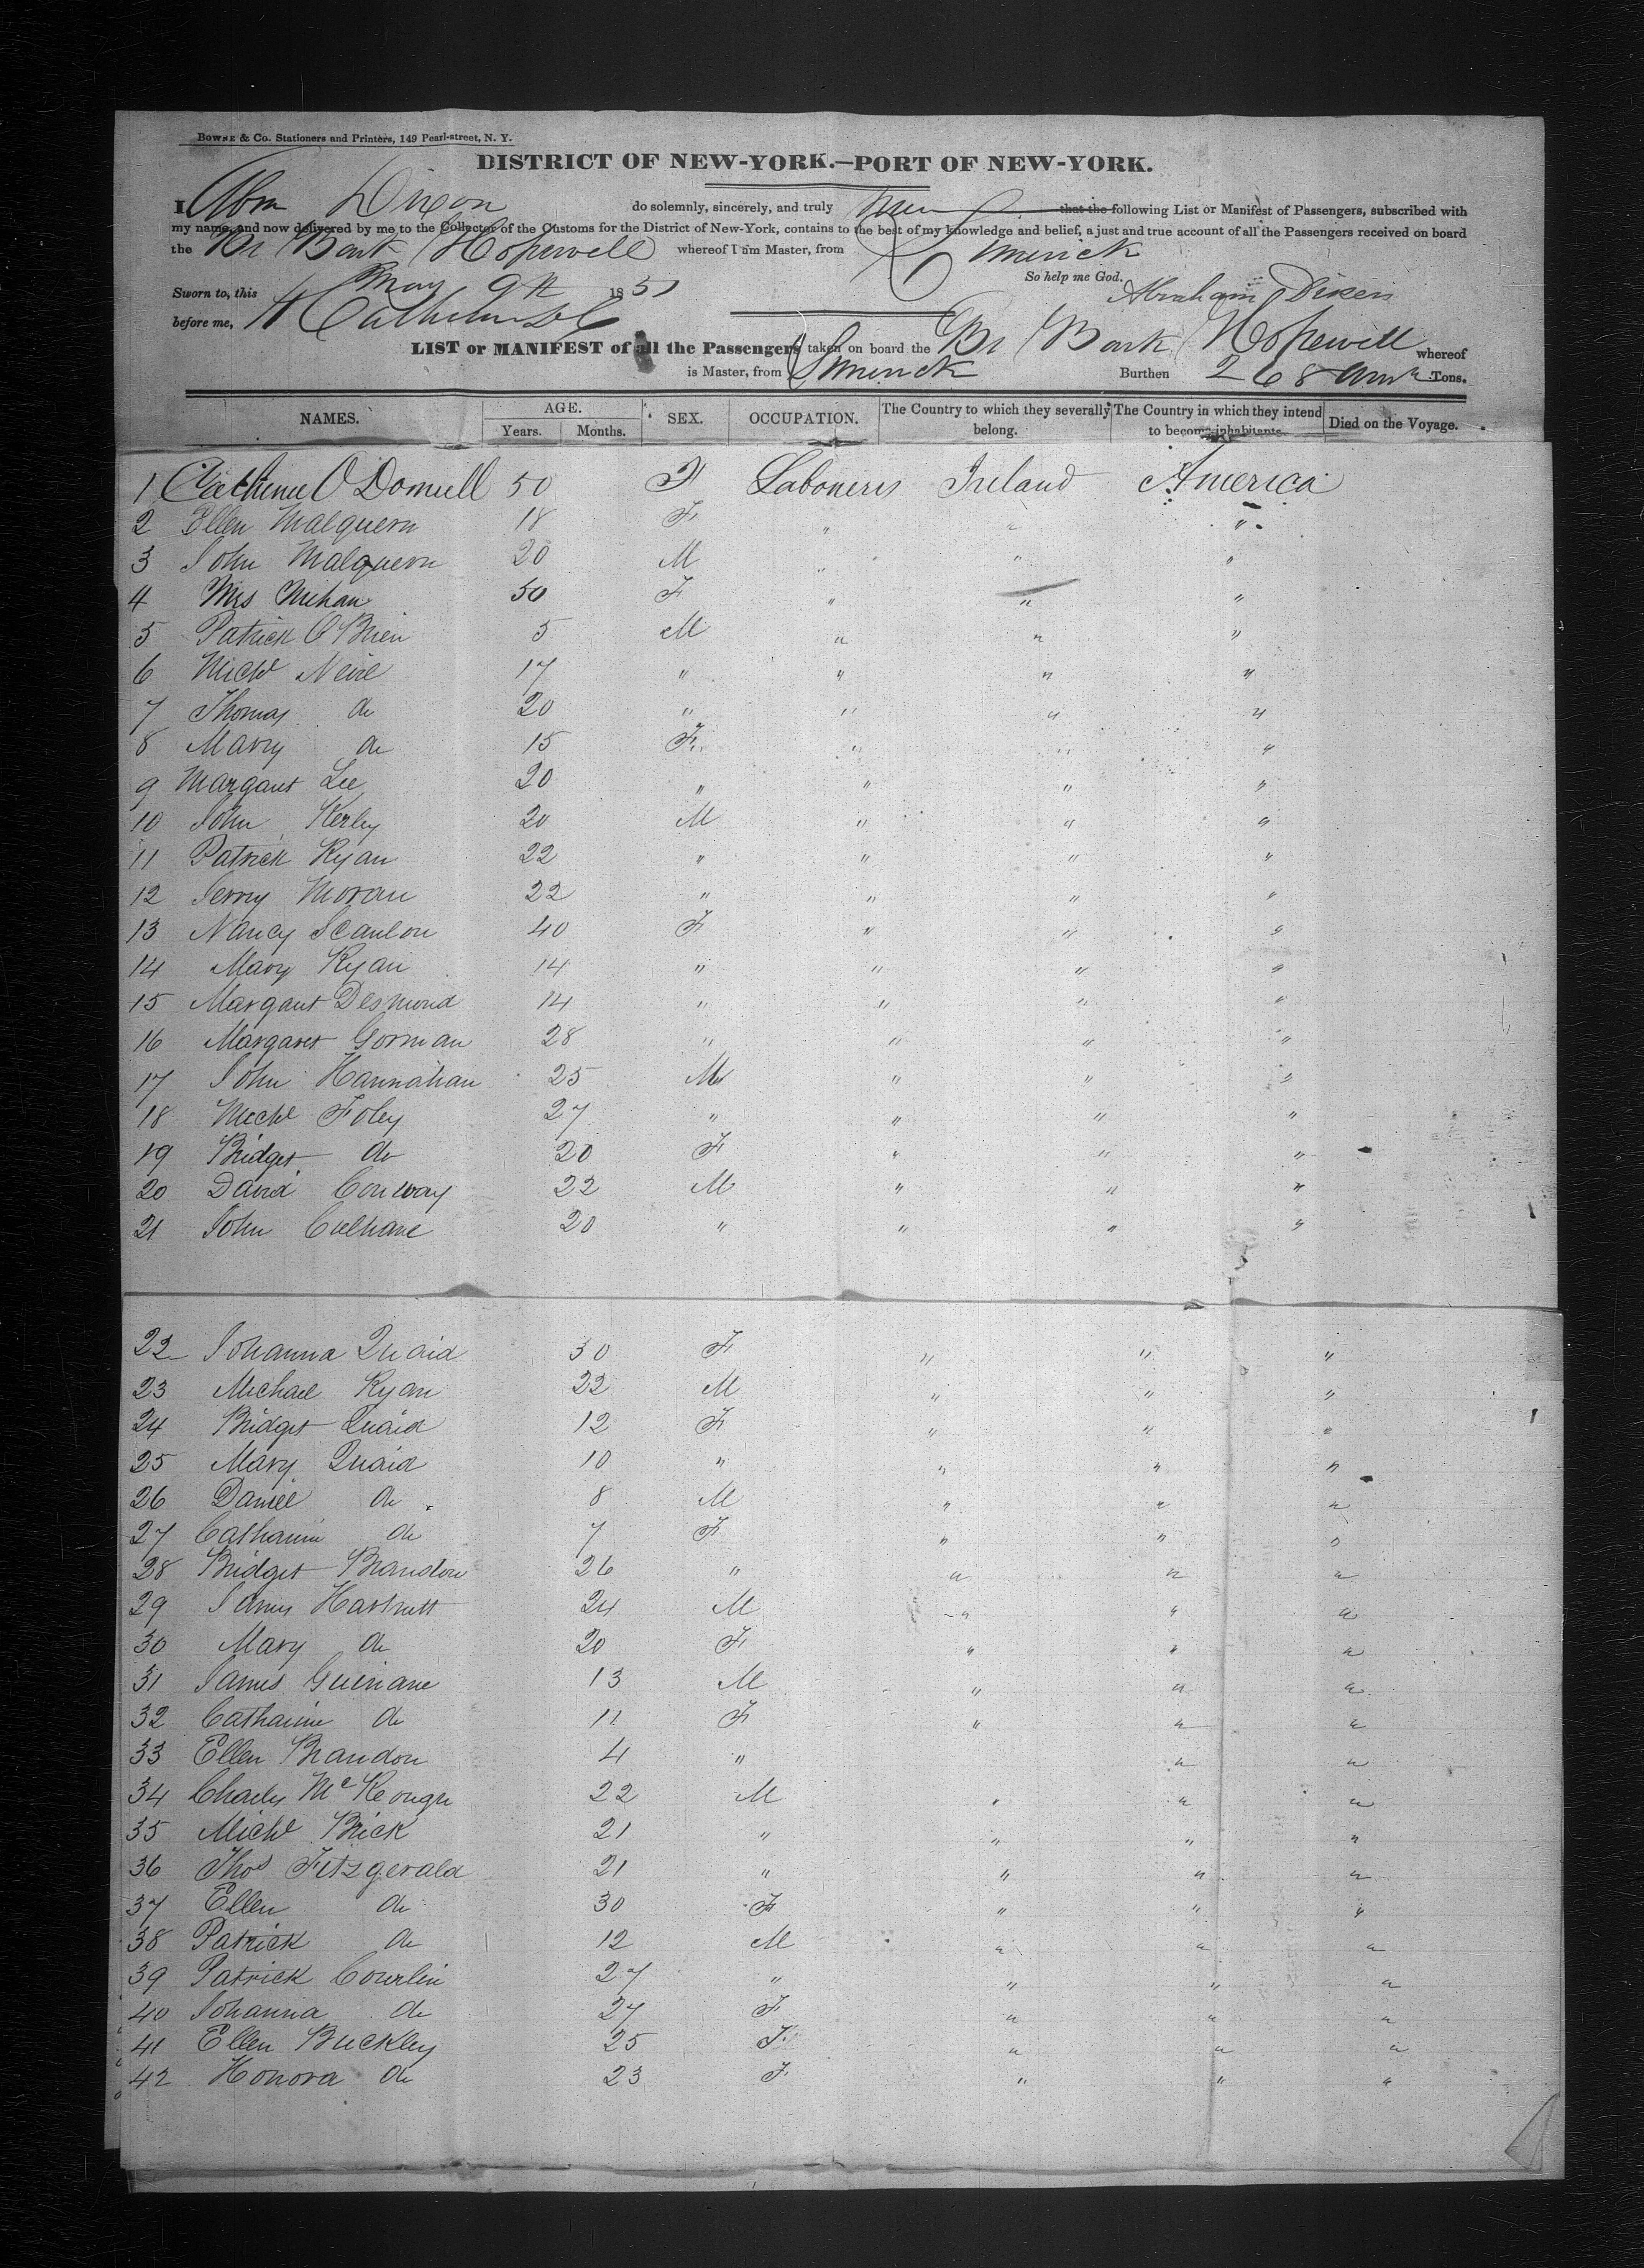 BOWNE & Co. Stationers and Printers, 149 Pearl-street, N. Y.
DISTRICT OF NEW-YORK.—PORT OF NEW-YORK.
I Abm Dixon do solemnly, sincerely, and truly that the following List or Manifest of Passengers, subscribed with
my name, and now delivered by me to the Collector of the Customs for the District of New-York, contains to the best of my knowledge and belief, a just and true account of all the Passengers received on board
the Br Bark Hopewell whereof I am Master, from Limerick
So help me God.
Sworn to, this May 9th 1851 Abraham Dixon
before me,
LIST or MANIFEST of all the Passengers taken on board the Br Bark Hopewell whereof
is Master, from Limerick Burthen 268 Tons.
NAMES. AGE. SEX. OCCUPATION. The Country to which they severally belong. The Country in which they intend to become inhabitants. Died on the Voyage.
Years. Months.
1 Catherine O Donnell 50 F Laborers Ireland America
2 Ellen Malquern 18 F " " "
3 John Malquern 20 M " " "
4 Mrs Mehan 50 F " " "
5 Patrick O Brien 5 M " " "
6 Michl Neile 17 " " " "
7 Thomas do 20 " " " "
8 Mary do 15 F " " "
9 Margaret Lee 20 " " " "
10 John Kerley 20 M " " "
11 Patrick Ryan 22 " " " "
12 Jerry Moran 22 " " " "
13 Nancy Scanlon 40 F " " "
14 Mary Ryan 14 " " " "
15 Margaret Desmond 14 " " " "
16 Margaret Gorman 28 " " " "
17 John Hannahan 25 M " " "
18 Michl Foley 27 " " " "
19 Bridget do 20 F " " "
20 David Conway 22 M " " "
21 John Culhane 20 " " " "
22 Johanna Quaid 30 F " " "
23 Michael Ryan 22 M " " "
24 Bridget Quaid 12 F " " "
25 Mary Quaid 10 " " " "
26 Daniel do 8 M " " "
27 Catharine do 7 F " " "
28 Bridget Brandon 26 " " " "
29 James Hartnett 24 M " " "
30 Mary do 20 F " " "
31 James Guinane 13 M " " "
32 Catharine do 11 F " " "
33 Ellen Brandon 4 " " "
34 Charles McKeough 22 M " " "
35 Michl Brick 21 " " " "
36 Thos Fitzgerald 21 " " " "
37 Ellen do 30 F " " "
38 Patrick do 12 M " " "
39 Patrick Courlin 27 " " " "
40 Johanna do 27 F " " "
41 Ellen Buckley 25 F " " "
42 Honora do 23 F " " "